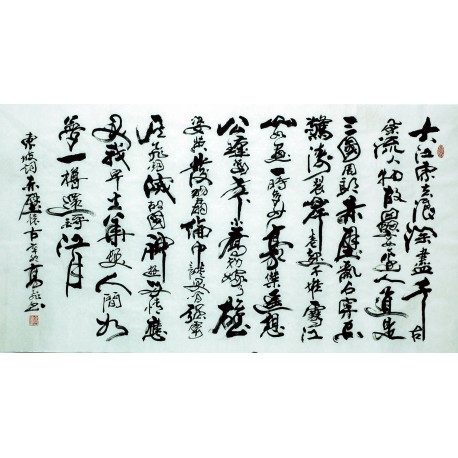 大江東去浪淘盡千古
風流人物故壘西邊人道是
三國周郎赤壁亂石穿空
驚濤裂岸卷起千堆雪江
山如畫一時多少豪傑遙想
公瑾當年小喬初嫁了雄
姿英發羽扇綸巾談笑間強虜
灰飛煙滅故國神遊多情應
笑我早生華髮人間如
夢一樽還酹江月
東坡詞赤壁懷古